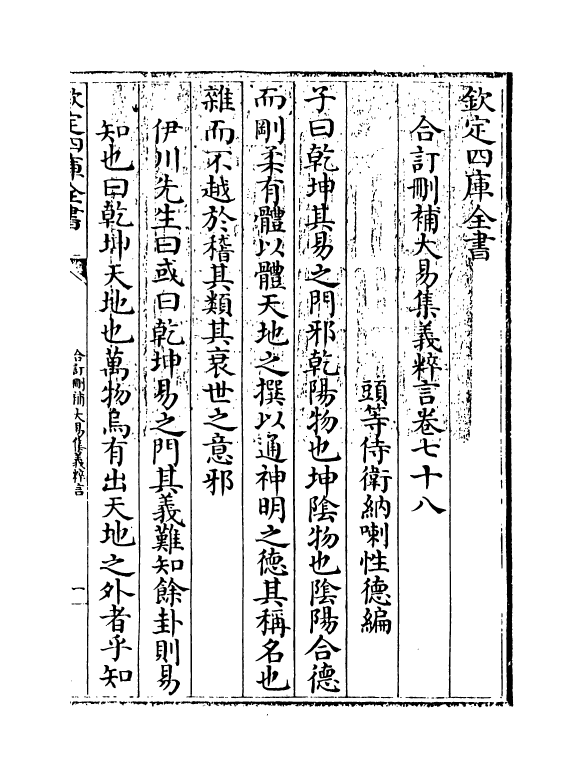 欽定四庫全書
合訂刪補大易集義粹言卷七十八
頭等侍衛納喇性德編
子曰乾坤其易之門邪乾陽物也坤陰物也陰陽合德
而剛柔有體以體天地之撰以通神明之德其稱名也
雜而不越於稽其類其衰世之意邪
伊川先生曰或曰乾坤易之門其義難知餘卦則易
知也曰乾坤天地也萬物烏有出天地之外者乎知
欽定四庫全書
合訂刪補大易集義粹言
一